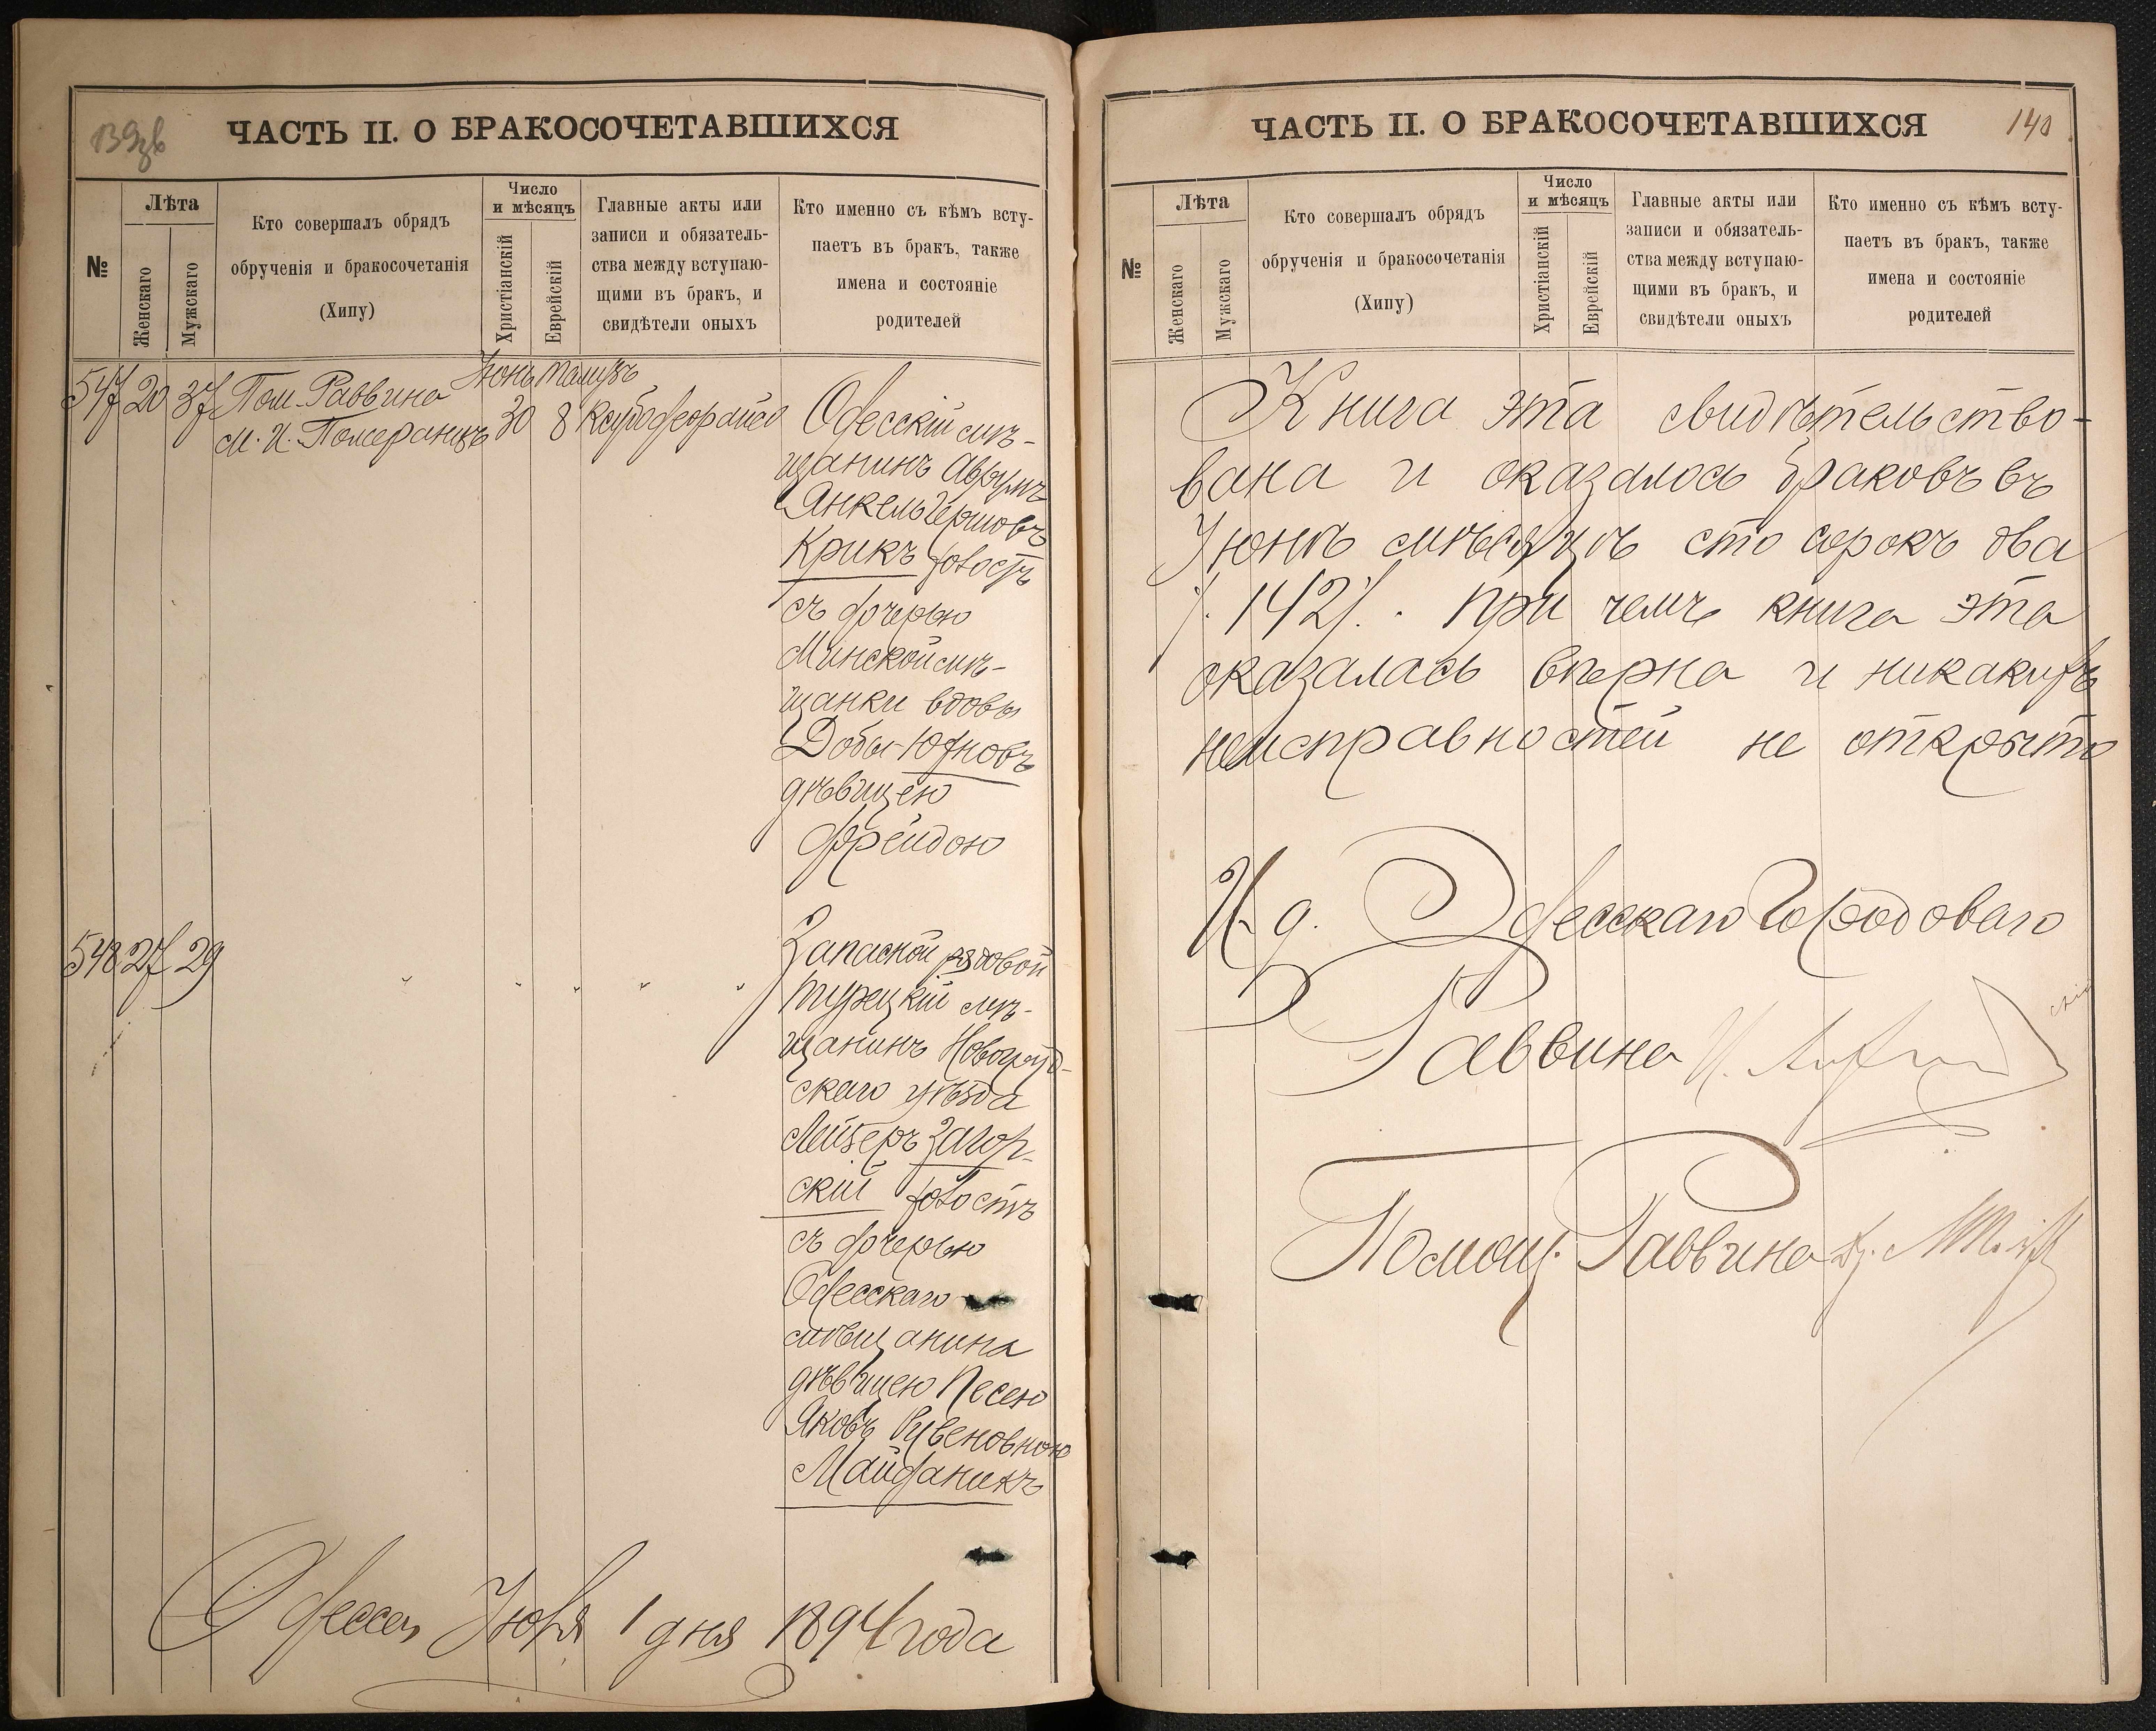 ЧАСТЬ II. О БРАКОСОЧЕТАВШИХСЯ
№
Лѣта
Женскаго
Мужскаго
Кто совершалъ обрядъ
обрученія и бракосочетанія
(Хипу)
Число
и мѣсяцъ
Христіанскій
Еврейскій
Главные акты или
записи и обязатель-
ства между вступаю-
щими въ бракъ, и
свидѣтели оныхъ
Кто именно съ кѣмъ всту-
паетъ въ бракъ, также
имена и состояніе
родителей
547 20 37 Пом. Раввина
М. И. Померанцъ
Іюнь Тамузъ
30 8
Одесскій мѣ-
щанинъ Аврумъ
Янкель Гершовъ
Крикъ холостъ
съ дочерью
Минской мѣ-
щанки вдовы
Добы Юдновъ
дѣвицею
Фрейдою
548 27 29 " " " " "
Запасной рядовой
Турецкій мѣ-
щанинъ Новогруд-
скаго уѣзда
Лейзеръ Загор-
скій холостъ
съ дочерью
Одесскаго
мѣщанина
дѣвицею Песею
Яковъ Рувеновною
Майданикъ
Одесса, Іюля 1 дня 1894 года
ЧАСТЬ II. О БРАКОСОЧЕТАВШИХСЯ
140
№
Лѣта
Женскаго
Мужскаго
Кто совершалъ обрядъ
обрученія и бракосочетанія
(Хипу)
Число
и мѣсяцъ
Христіанскій
Еврейскій
Главные акты или
записи и обязатель-
ства между вступаю-
щими въ бракъ, и
свидѣтели оныхъ
Кто именно съ кѣмъ всту-
паетъ въ бракъ, также
имена и состояніе
родителей
Книга эта свидѣтельство-
вана и оказалось браковъ въ
Іюнѣ мѣсяцѣ сто сорокъ два
/. 142 /. При чемъ книга эта
оказалась вѣрна и никакихъ
неисправностей не открыто
И. д. Одесскаго Городоваго
Раввина
Помощ. Раввина